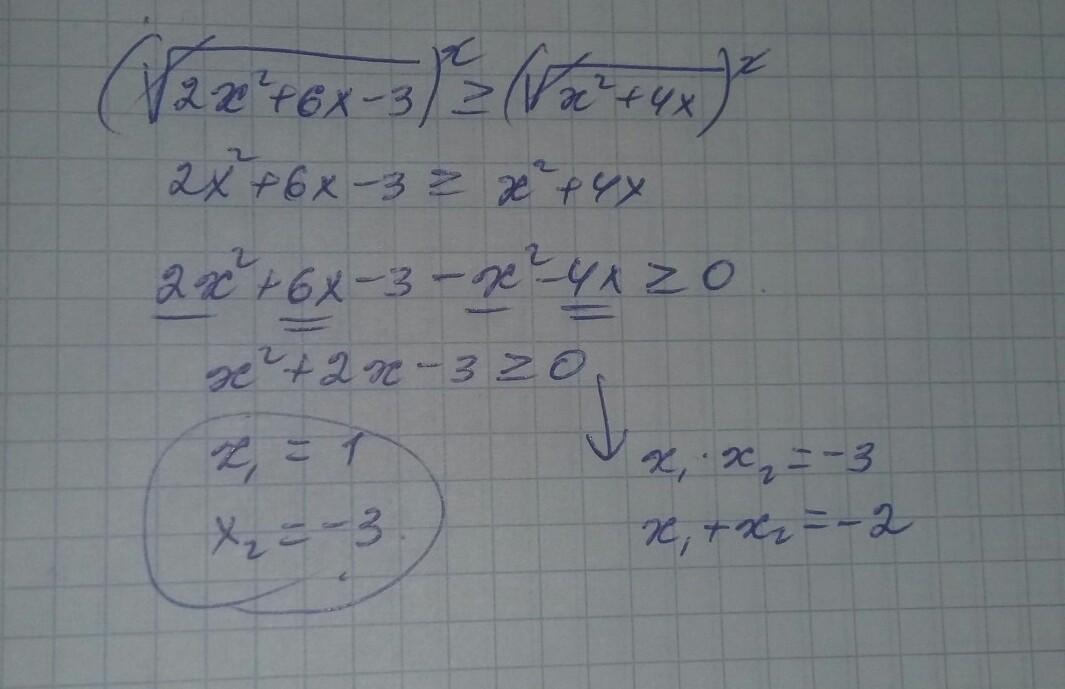 (√(2x²+6x-3))² ≥ (√(x²+4x))²
2x²+6x-3 ≥ x²+4x
2x²+6x-3-x²-4x ≥ 0
x²+2x-3 ≥ 0
x₁ = 1
x₁·x₂ = -3
x₂ = -3
x₁+x₂ = -2